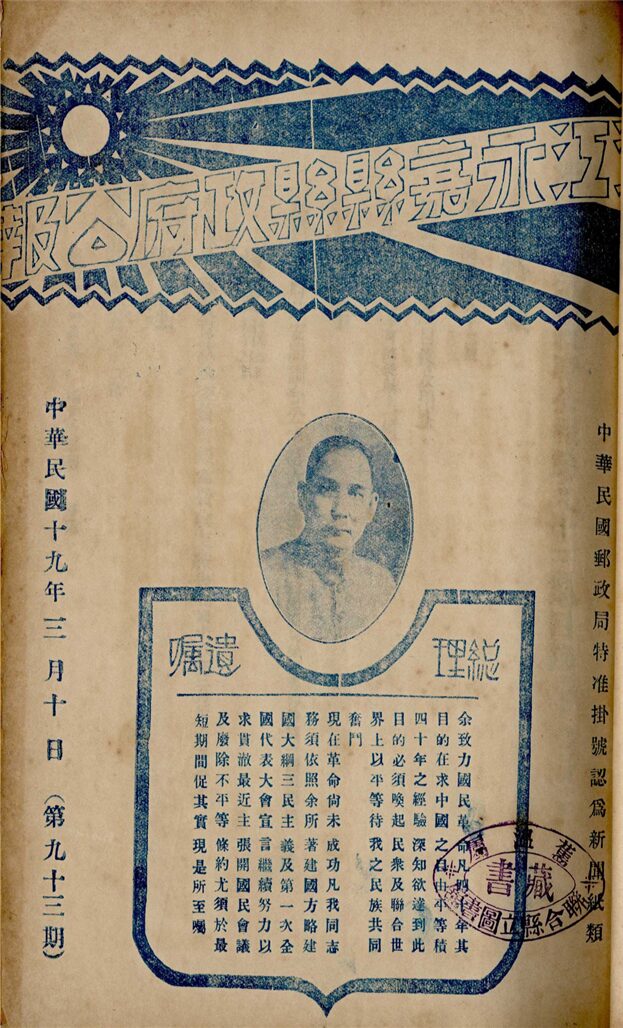 江永嘉縣縣政府公報
中華民國郵政局特准掛號認爲新聞紙類
總理遺囑
余致力國民革命凡四十年其
目的在求中國之自由平等積
四十年之經驗深知欲達到此
目的必須喚起民衆及聯合世
界上以平等待我之民族共同
奮鬥
現在革命尚未成功凡我同志
務須依照余所著建國方略建
國大綱三民主義及第一次全
國代表大會宣言繼續努力以
求貫澈最近主張開國民會議
及廢除不平等條約尤須於最
短期間促其實現是所至囑
中華民國十九年三月十日（第九十三期）
舊溫屬
聯合縣立圖書
藏書